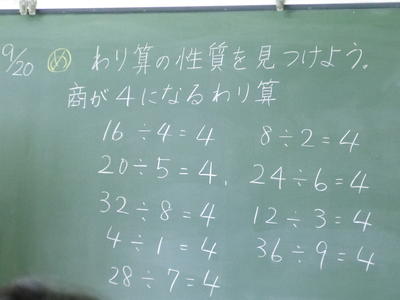 9/20 め わり算の性質を見つけよう。
商が4になるわり算
16÷4=4 8÷2=4
20÷5=4、 24÷6=4
32÷8=4 12÷3=4
4÷1=4 36÷9=4
28÷7=4